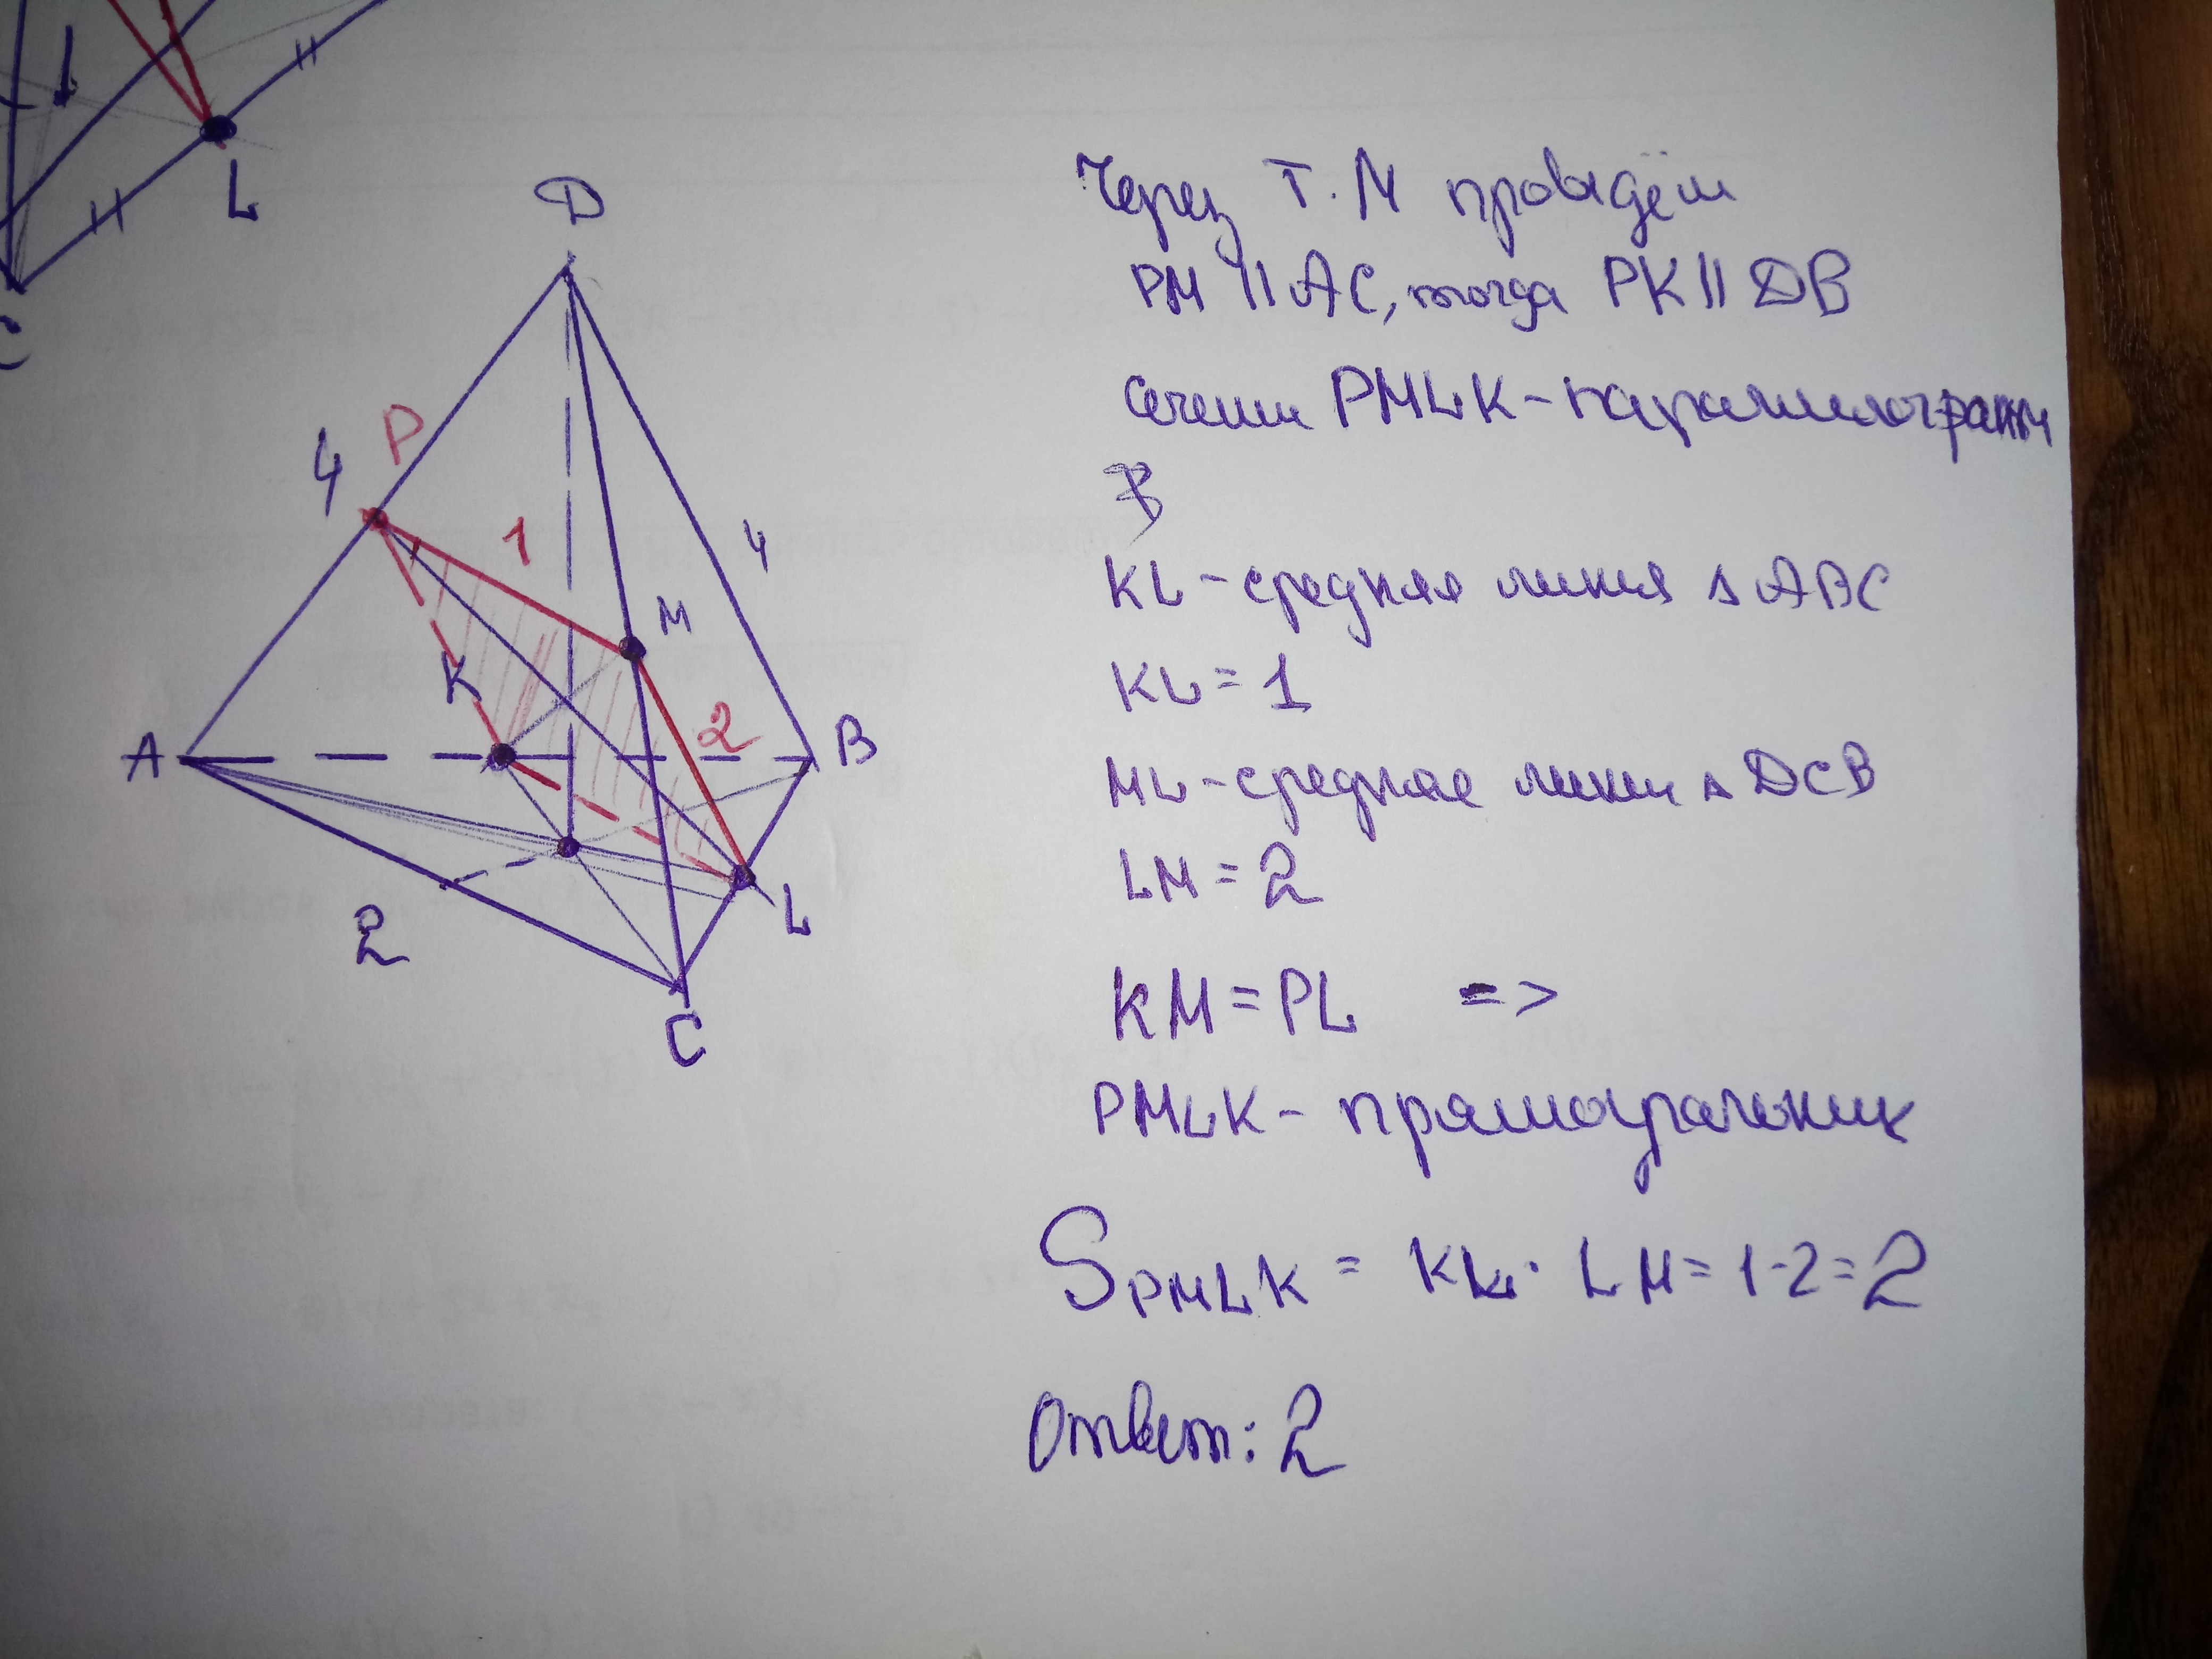 L
C
D
4
P
1
4
M
K
2
A
B
L
2
C
Через т. М проведём
PM || AC, тогда PK || DB
сечение PMLK - параллелограмм
KL - средняя линия Δ ABC
KL = 1
ML - средняя линия Δ DCB
LM = 2
KM = PL =>
PMLK - прямоугольник
S PMLK = KL · LM = 1·2 = 2
Ответ: 2